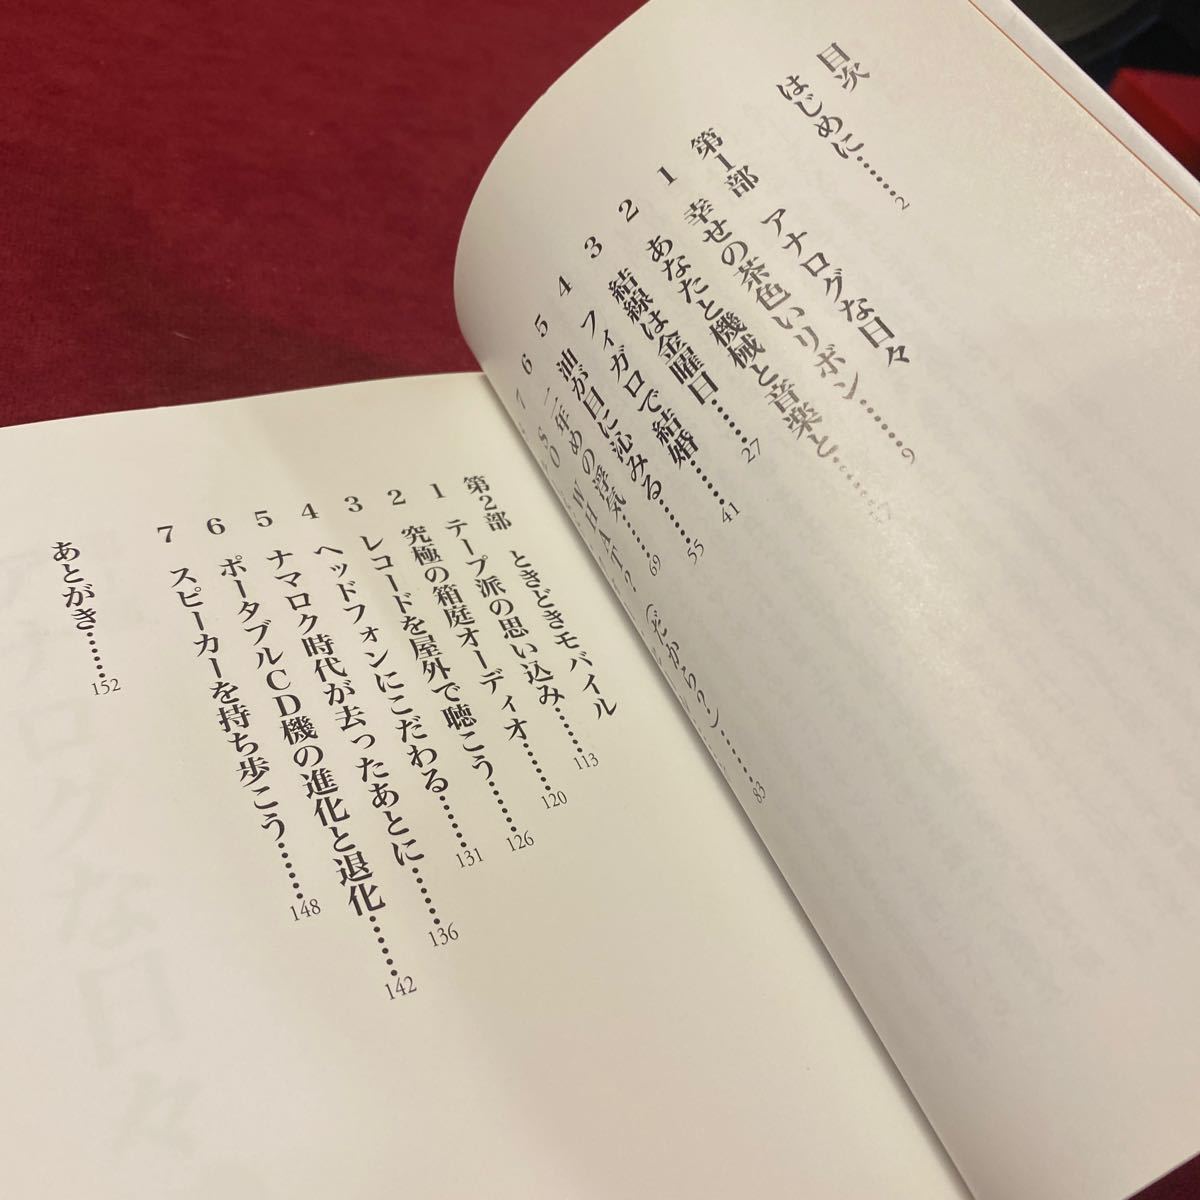 目次
はじめに……2
第1部 アナログな日々
1 幸せの茶色いリボン……9
2 あなたと機械と音楽と……
3 結線は金曜日……27
4 フィガロで結婚……41
5 油が目に沁みる……55
6 二年めの浮気……69
7 SO WHAT?(だから?)……83
第2部 ときどきモバイル
1 テープ派の思い込み……113
2 究極の箱庭オーディオ……120
3 レコードを屋外で聴こう……126
4 ヘッドフォンにこだわる……131
5 ナマロク時代が去ったあとに……136
6 ポータブルCD機の進化と退化……142
7 スピーカーを持ち歩こう……148
あとがき……152